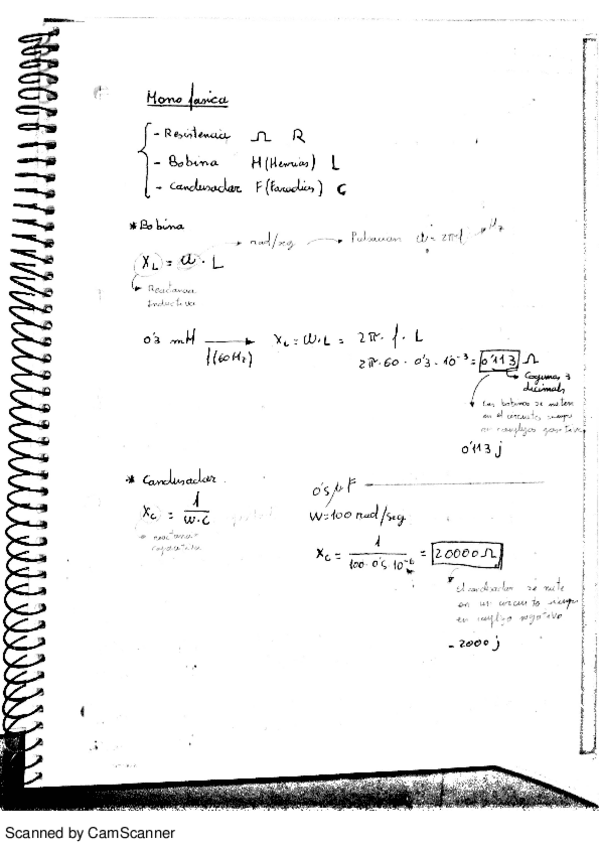 Monofasica
- Resistencia Ω R
- Bobina H (Henrios) L
- Condensador F (Faradios) C
* Bobina
rad/seg → Pulsacion ω = 2πf → Hz
X_L = ω · L
Reactancia
inductiva
0'3 mH → f(60Hz) X_L = ω·L = 2π · f · L
2π·60·0'3·10⁻³ = 0'113 Ω
Cogemos 3
decimales
Las bobinas se meten
en el circuito siempre
en complejos positivo
0'113 j
* Condensador
X_C = 1 / w·C
reactancia
capacitiva
0'5 μF
W=100 rad/seg
X_C = 1 / 100·0'5·10⁻⁶ = 20000Ω
El condensador se mete
en un circuito siempre
en complejo negativo
- 2000 j
Scanned by CamScanner